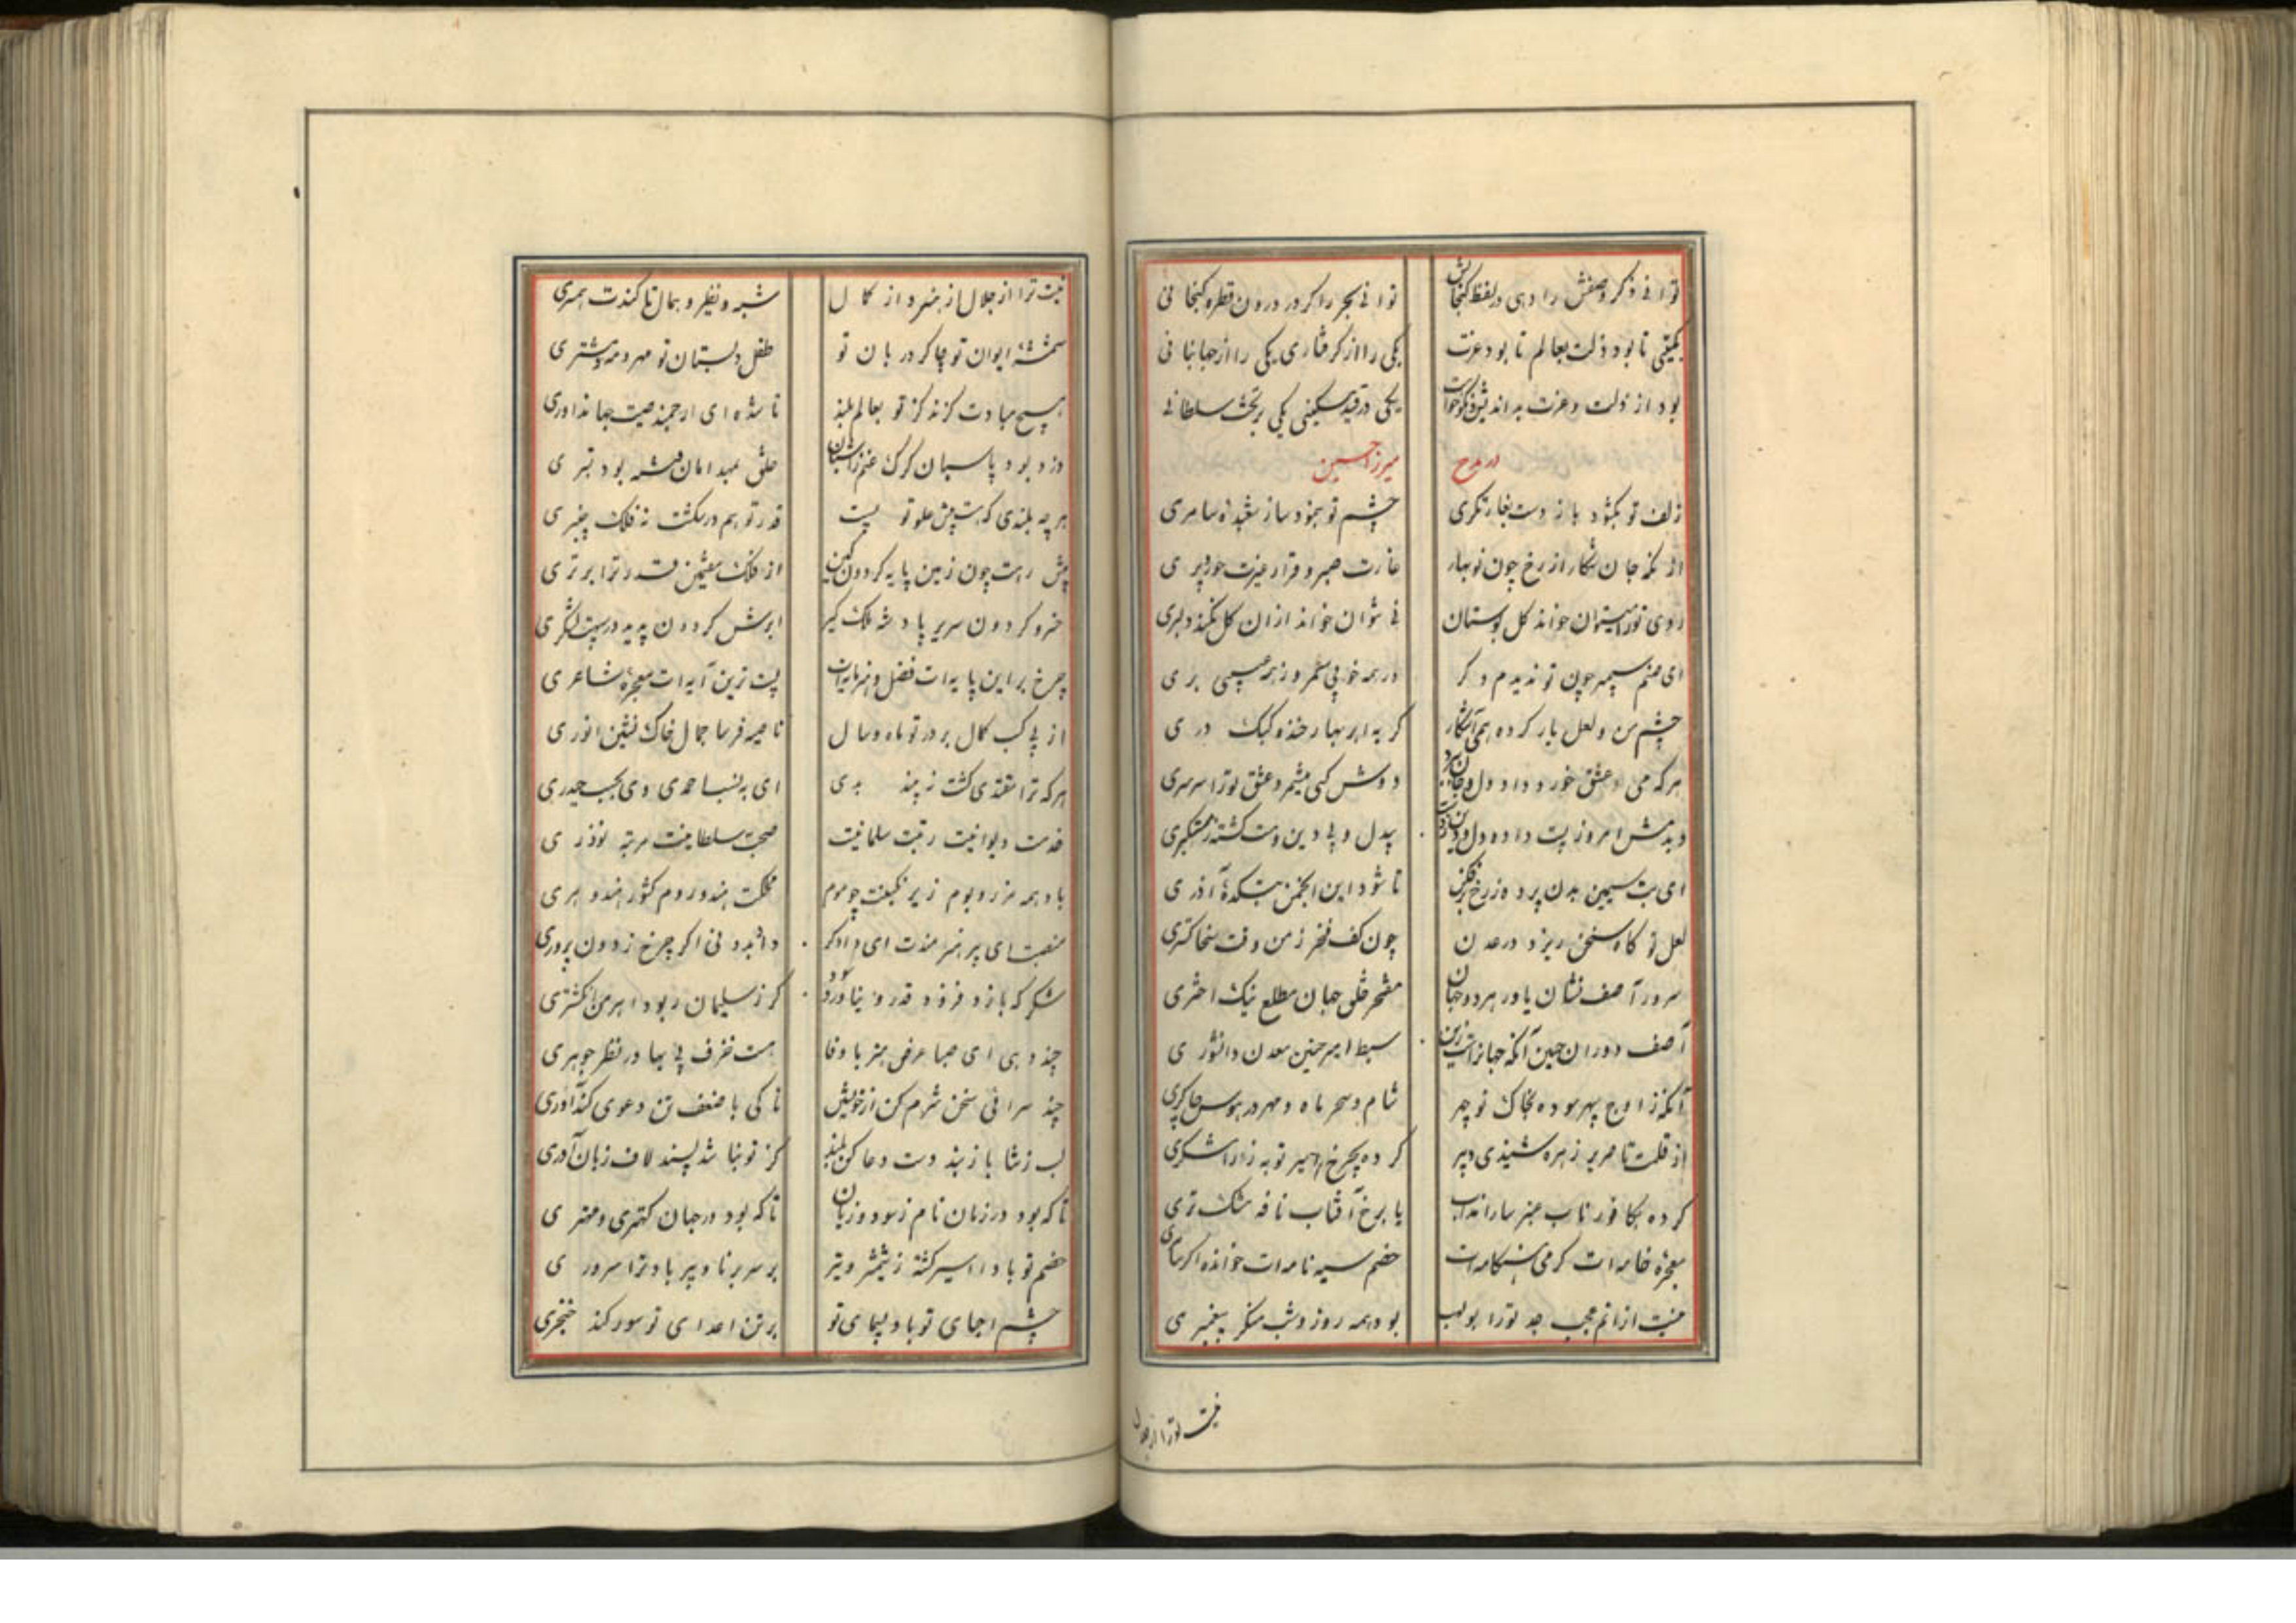 توانی ذکر وصفش را دهی در لفظ گنجایش توانی بحر را کر در درون قطره گنجانی
بگیتی تا بود ذلت بعالم تا بود عزت یکی را از گرفتاری یکی را از جهانبانی
بود از ذلت و عزت بداندیش و نکوخواهت یکی در قید مسکینی یکی بر تخت سلطانی
در مدح میرزا حسین
زلف تو بگشود باز دست بغارتگری چشم تو بنمود ساز شعبده سامری
غارت صبر و قرار غیرت حور و پری
روی تو را میتوان خواند گل بوستان نی نتوان خواند ازان گل نکند دلبری
ای صنم سیمبر چون تو ندیدم دگر در همه خوبی سمر وز همه عیبی بری
چشم من و لعل یار کرده همی آشکار گریه ابر بهار خنده کبک دری
هر که می عشق خورد داد دل و جان
دیدمش امروز پست داده دل و دین بیدل و بی دین و مست گشته ز مستکبری
ای بت سیمین بدن پرده ز رخ برفکن تا شود این انجمن بتکده آذری
لعل تو گاه سخن ریزد در عدن چون کف فخر زمن وقت سخا گستری
سرور آصف نشان یاور هر دو جهان مفخر خلق جهان مطلع نیک اختری
آصف دوران حسین آنکه جهانراست زین سبط امیر حنین معدن دانشوری
آنکه ز اوج سپهر سوده بخاک تو چهر شام و سحر ماه و مهر در هوس چاکری
از قلمت تا صریر زهره شنیدی دبیر کرده بچرخ اثیر توبه ز رامشگری
کرده بکافور ناب عنبر سارا نقاب یا برخ آفتاب نافه مشک تری
معجزه خامه ات گرمی هنگامه ات خصم سیه نامه ات خوانده اگر ساحری
نیست ازانم عجب جد تو را بولهب بود همه روز و شب منکر پیغمبری
نیست تو را از جلال
نیست ترا از جلال از هنر و از کمال شبه و نظیر و همال تا کندت همسری
شمسه ایوان تو چاکر دربان تو طفل دبستان تو مهر و مه و مشتری
هیچ مبادت گزند کز تو بعالم بلند تا شده ای ارجمند صیت جهانداوری
دزد بود پاسبان گرگ غنم را شبان
هر چه بلندی که هست پیش علو تو پست قدر تو هم درشکست نه فلک چنبری
پیش رهت چون زمین پایه گردون از فلک هفتمین قدر ترا برتری
خسرو گردون سریر پادشه ملک گیر
چرخ برین پایه ات فضل و هنر مایه ات پست ترین آیه ات معجزه شاعری
از پی کسب کمال بر در تو ماه و سال ناصیه فرسا جمال خاک نشین انوری
هر که ترا مقتدی گشت نبیند بدی ای به نسب احمدی وی بحسب حیدری
خدمت دیوانیت رتبت سلمانیت صحبت سلطانیت مرتبه نوذری
باد همه مرز و بوم زیر نگینت چو موم مملکت هند و روم کشور هند و هری
منصبت ای پر هنر مندت ای دادگر داند و نی اگر چرخ ز دون پروری
شکر که باز گر ز سلیمان ربود اهرمن انگشتری
چند دهی ای صبا عرض هنر با وفا هست خزف بی بها در نظر جوهری
چند سرائی سخن شرم کن از خویشتن تا کی با ضعف تن دعوی کندآوری
لب ز ثنا باز بند دست دعا کن بلند کز تو نباشد پسند لاف زبان آوری
تا که بود در زمان نام ز سود و زیان تا که بود در جهان کهتری و مهتری
خصم تو بادا اسیر کشته ز شمشیر و تیر بر سر برنا و پیر باد ترا سروری
چشم احبای تو باد بپهای تو بر تن اعدای تو سور کند خنجری